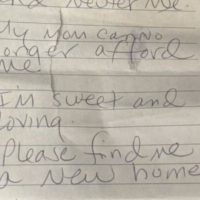 and Neuter me.
My mom can no
longer afford
me
I'm sweet and
loving.
Please find me
a new home